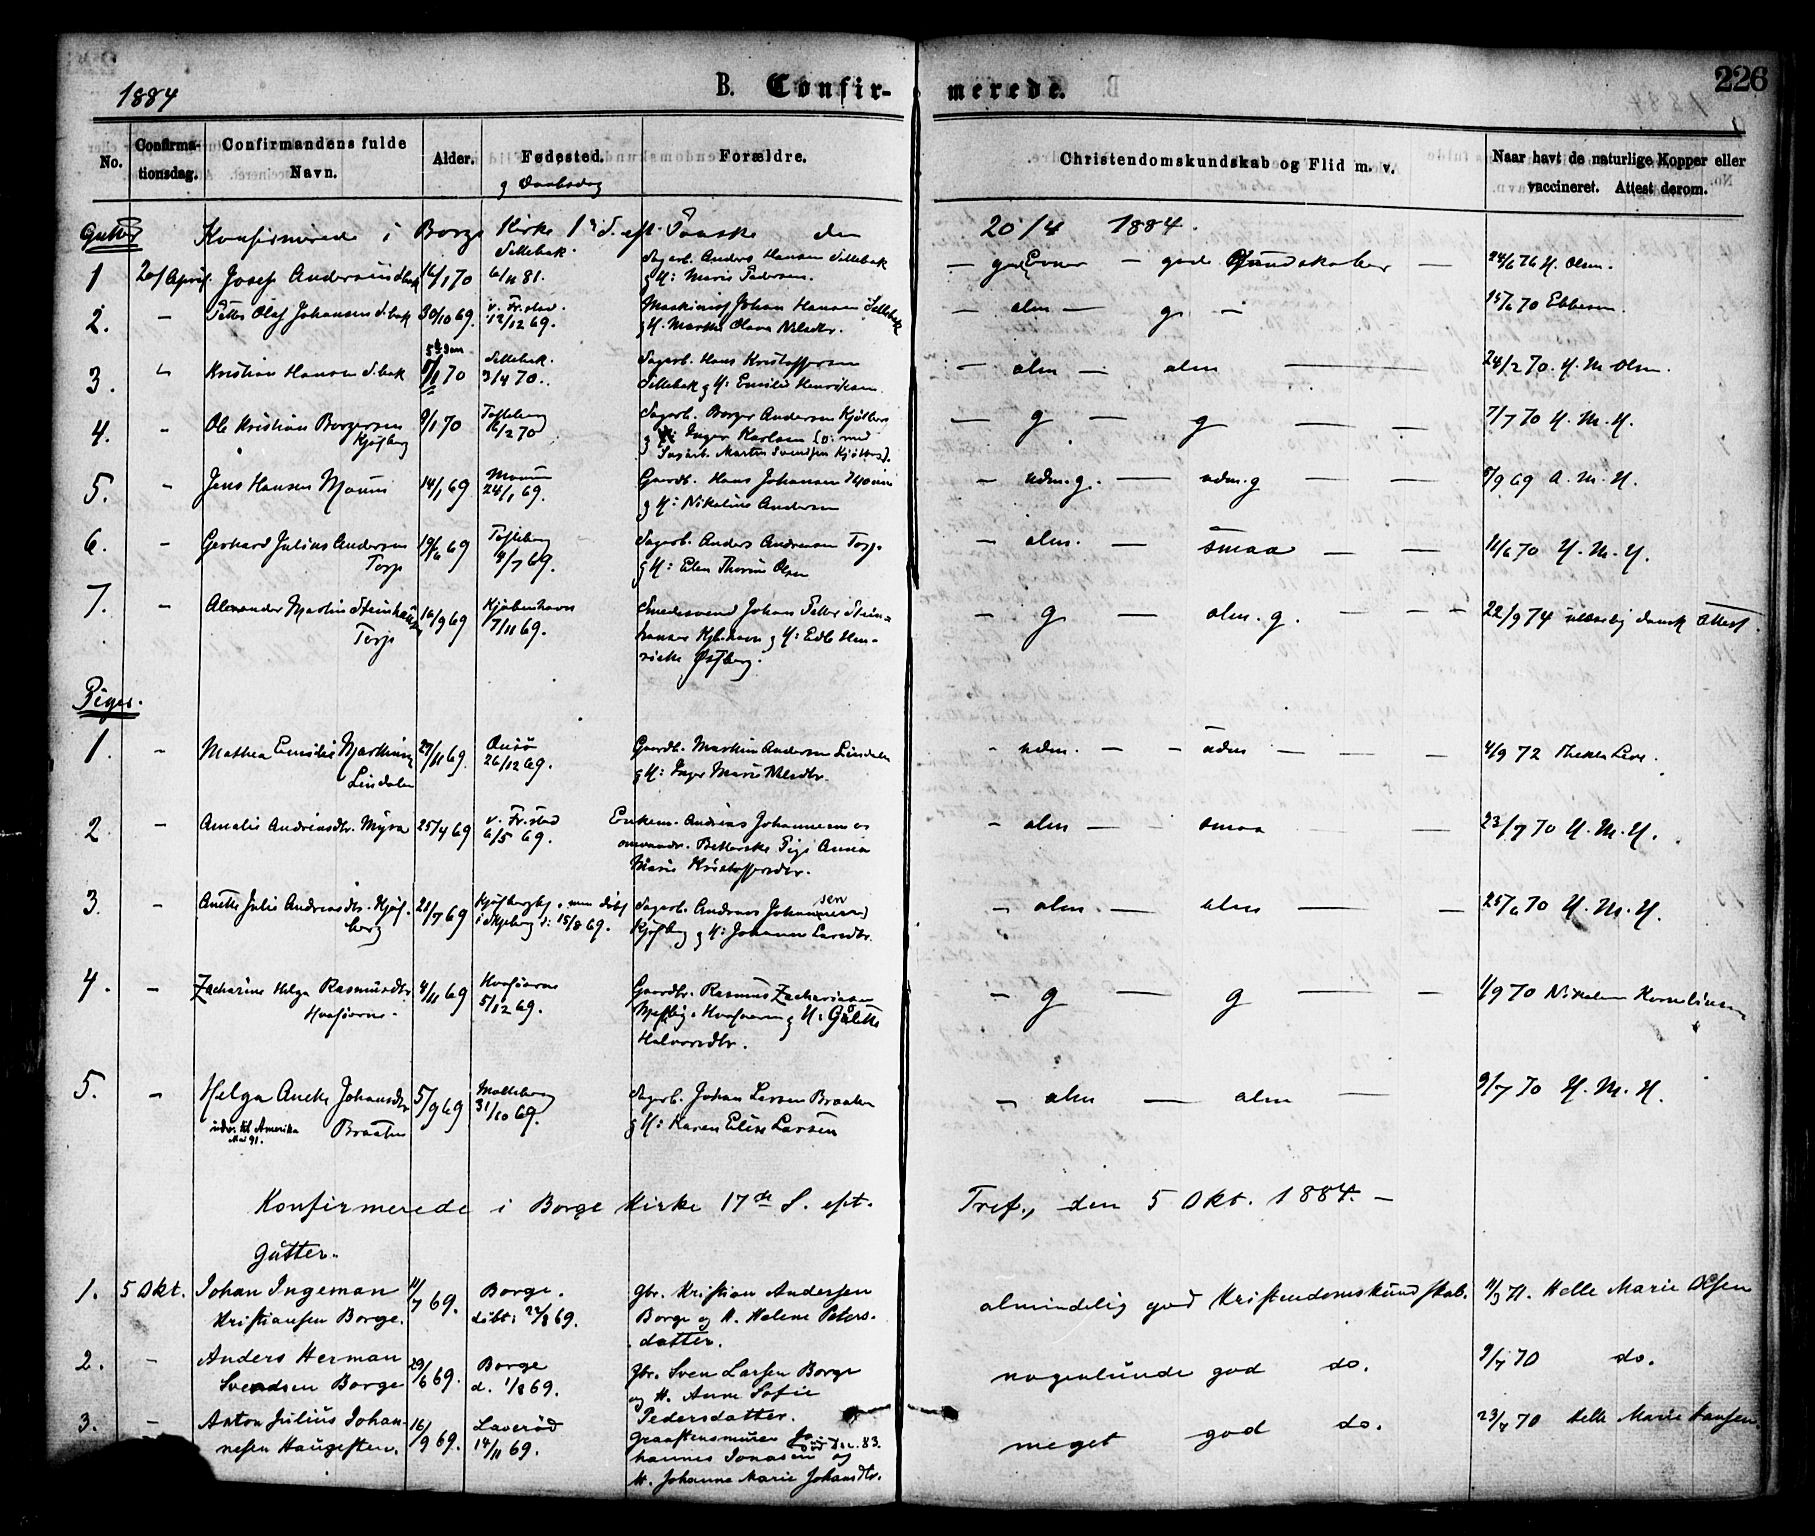 1884
B. Confir-
merede.
226
No.
Confirma-
tionsdag.
Confirmandens fulde
Navn.
Alder.
Fødested.
g Daabsdag
Forældre.
Christendomskundskab og Flid m. v.
Naar havt de naturlige Kopper eller
vaccineret. Attest derom.
Gutter
Konfirmerede i Borge Kirke 1ste S. eft. Paaske den 20/4 1884.
1 20/April Josef Andersen 16/1 70
Sellebak
6/11 81.
Sagarb. Anders Hansen Sellebak
g H: Marie Pedersen.
— gode Evner — gode Kundskaber — 24/6 76 H. Olsen.
2. — Petter Olaf Johansen S.bak 30/10 69.
v. Fr.stad.
12/12 69.
Maskinist Johan Hansen Sellebak
g H. Marthe Olava Nilsdtr.
— alm — g — 15/6 70 Ebbesen
3. Kristian Hansen S.bak 70
Sellebak.
3/4 70.
Sagarb. Hans Kristoffersen
Sellebak g H: Emilie Henriksen
— alm — alm — 24/2 70. H. M. Olsen.
4. — Ole Kristian Borgersen 9/1 70
Kjøsberg
Tofteberg
6/2 70
Sagarb. Borger Andersen
g Inger Karlsen
Sagarb. Martin Svendsen
— g — g — 7/7 70 H. M. H.
5. — Jens Hansen Moum 14/1 69
Moum
24/1 69.
Gaardb. Hans Johansen Moum
g H: Nikoline Andersen
— udm. g. — udm. g — 5/9 69 A. M. H.
6. — Gerhard Julius Andersen 19/6 69
Torp
Tofteberg
4/7 69.
Sagarb. Anders Andreasen Torp
g H: Elen Thorine Olsen
— alm. — smaa — 11/6 70 H. M. H.
7. — Alexander Martin Steinhauser 16/9 69
Torp
Kjøbenhavn
7/11 69.
Smedesvend Johan Petter Stein-
hauser Kjbhavn g H: Edle Hen-
riette Østberg.
— g — alm. g. — 22/9 74 ulæselig dansk Attest.
Piger.
1. — Mathea Emilie Marthins 27/11 69
Lindalen
Onsø
26/12 69.
Gaardb. Martin Andersen Lindalen
g H: Inger Marie Nilsdtr.
— udm. — udm — 4/9 72
2 — Amalie Andreasdtr. Myra 25/4 69
v. Fr.stad
6/5 69.
Enkem. Andreas Johannesen og
omvandr. Betlerske Pige Anna
Marie Kristoffersdtr.
— alm — smaa — 23/7 70 H. M. H.
3. — Anette Julie Andreasdtr. Kjøs- 21/7 69
berg
i Skjeberg d: 15/8 69.
Sagarb. Andreas Johannessen
Kjøsberg g H: Johanne Larsdtr.
— alm — alm — 25/6 70 H. M. H.
4. — Zacharine Helga Rasmusdtr. 4/11 69
Hvaløerne.
Hvaløerne
5/12 69.
Gaardbr. Rasmus Zachariasen
Hvaløerne g H: Gulette
Halvorsdtr.
— g — g — 1/9 70 Nikolai Kornelius
5. — Helga Anette Johansdtr 5/9 69
udv. til Amerika Braaten
Mai 91.
Molteberg
31/10 69.
Sagarb. Johan Larsen Braaten
g H: Karen Elise Larsen
— alm — alm — 9/7 70 H. M. H.
Konfirmerede i Borge Kirke 17de S. eft. Tref., den 5 Okt. 1884. —
Gutter.
1. 5 Okt. Johan Ingeman 11/7 69.
Kristiansen Borge.
Borge.
døbt: 22/8 69.
Gbr. Kristian Andersen
Borge og H. Helene Peters-
datter.
almindelig god Kristendomskundskab. 11/3 71. Helle Marie Olsen
2. — Anders Herman 29/6 69.
Svendsen Borge
Borge
d. 1/8 69.
Gbr. Sven Larsen Borge
og H. Anne Sofie
Pedersdatter.
nogenlunde god do. 9/7 70 do.
3. — Anton Julius Johan- 16/9 69.
nesen Haugesten.
Laverød
14/11 69.
Graastensmurer Jo-
hannes Jonasen død Dec. 83. og
H. Johanne Marie Johansdtr.
meget god do. 23/7 70 Helle Marie Hansen